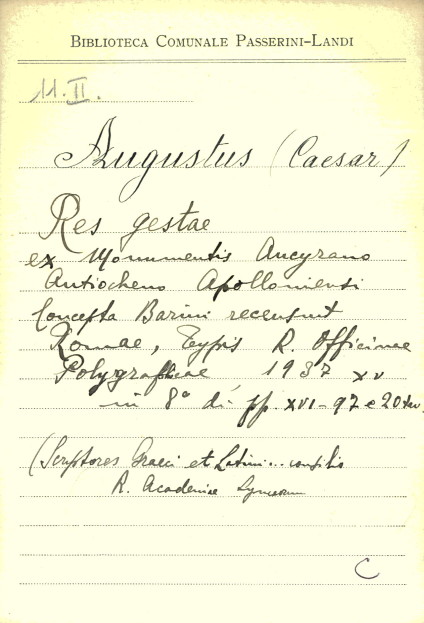 BIBLIOTECA COMUNALE PASSERINI-LANDI
11.II.
Augustus (Caesar)
Res gestae
ex Monumentis Ancyrano
Antiocheno Apolloniensi
Concepta Barini recensuit
Romae, Typis R. Officinae
Polygraphicae, 1937 XV
in 8° di pp. XVI-97 e 20 tav.
(Scriptores Graeci et Latini... consilio
R. Academiae Lynceorum
C